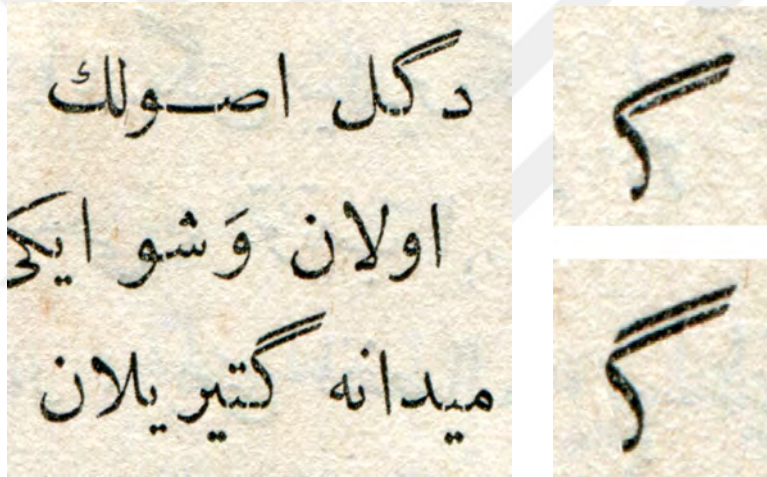 دگل اصـولك
اولان وَشو ایکی
میدانه گتیریلان
گ
گ